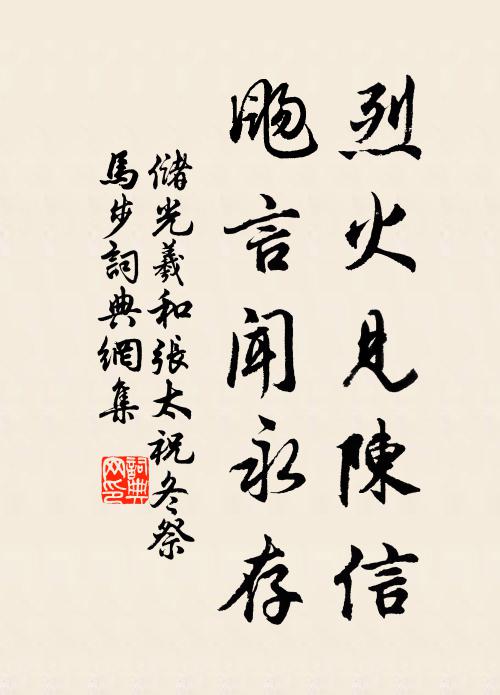 烈火見陳信
颺言聞永存
儲光羲和張太祝冬祭
馬步詞典網集
詞典网印